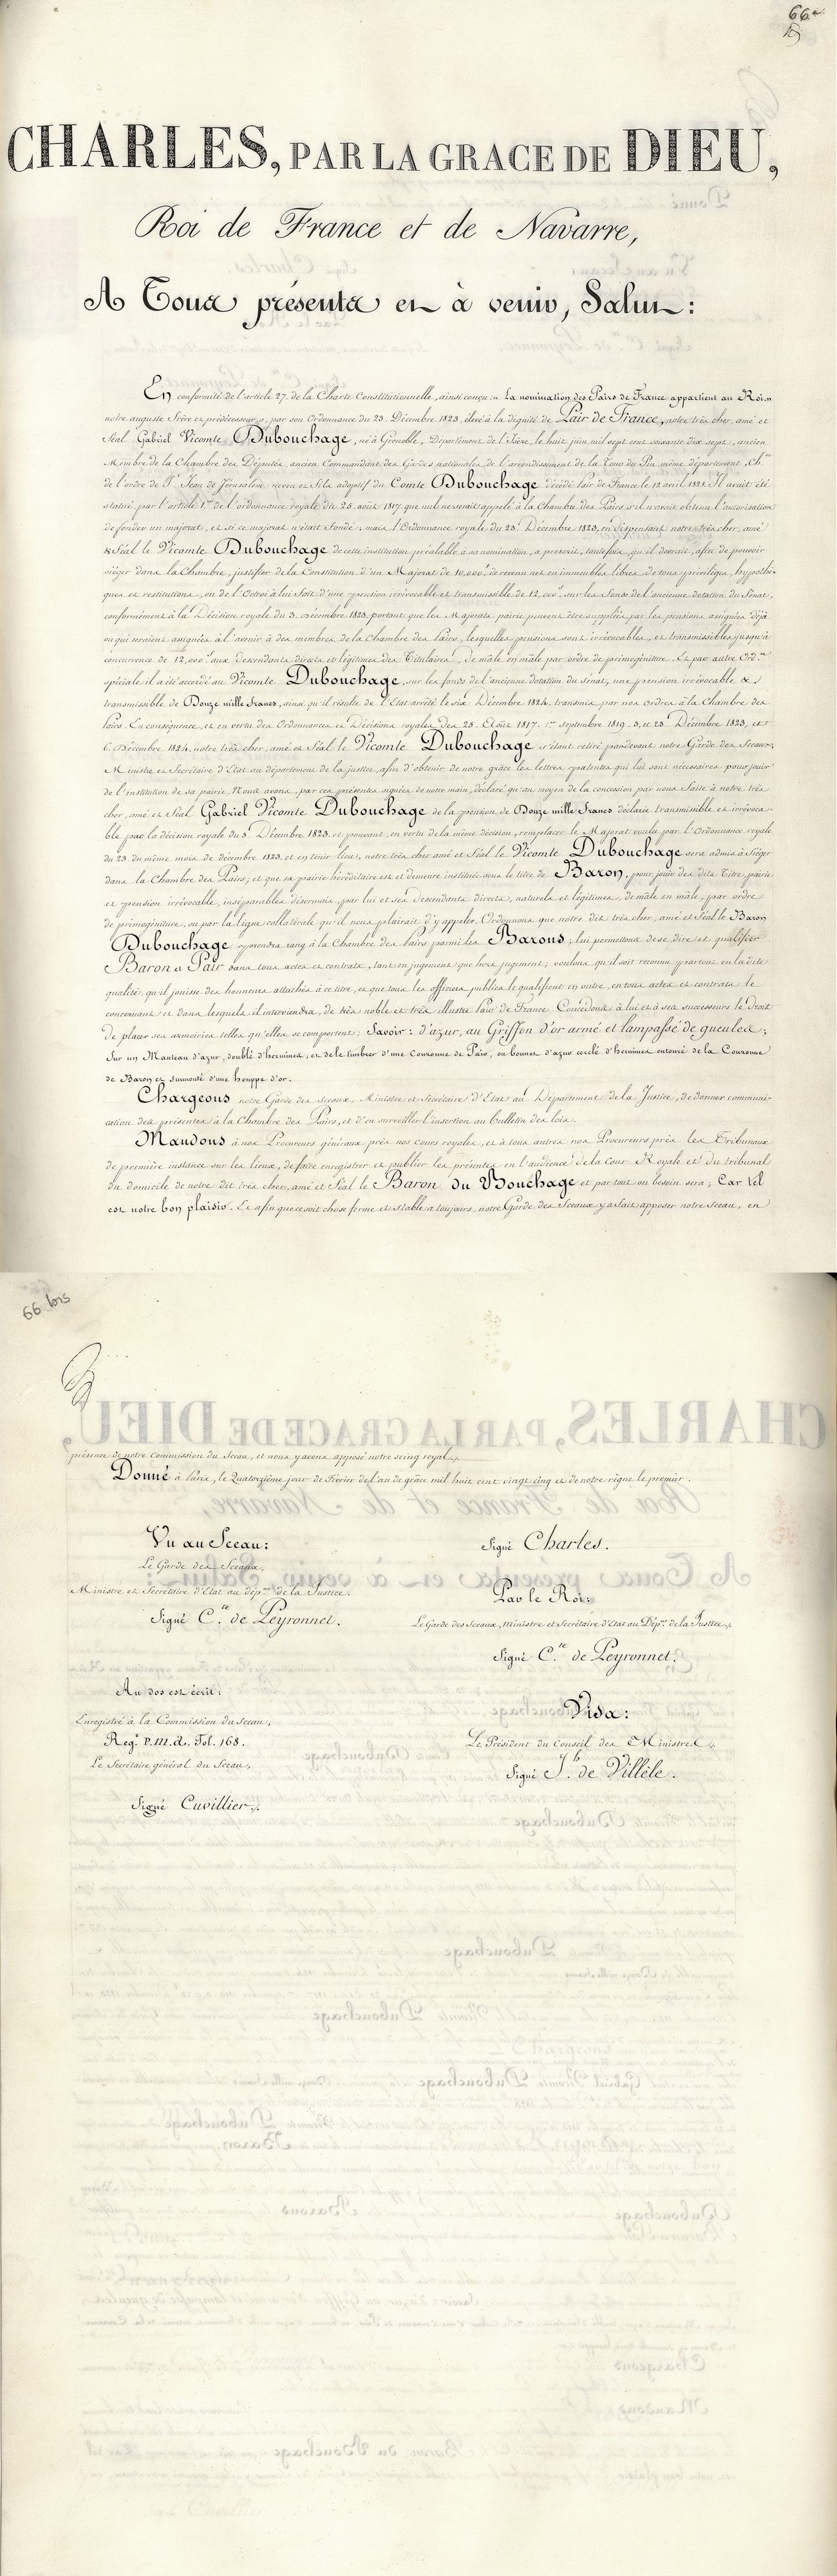 66
CHARLES, PAR LA GRACE DE DIEU,
Roi de France et de Navarre,
A Tous présents et à venir, Salut :
En conformité de l'article 27. de la Charte Constitutionnelle, ainsi conçu : La nomination des Pairs de France appartient au Roi.
notre auguste Frère et prédécesseur a, par son Ordonnance du 23. Décembre 1823, élevé à la dignité de Pair de France, notre très cher, amé et
féal Gabriel Vicomte Dubouchage, né à Grenoble, Département de l'Isère, le huit juin mil sept cent soixante dix sept, ancien
Membre de la Chambre des Députés, ancien Commandant des Gardes nationales de l'arrondissement de la Tour du Pin, même département, Ch.er
de l'ordre de St. Jean de Jérusalem, neveu et fils adoptif du Comte Dubouchage décédé Pair de France le 12 avril 1821. Il avait été
statué par l'article 1.er de l'ordonnance royale du 25. août 1817. que nul ne serait appelé à la Chambre des Pairs s'il n'avait obtenu l'autorisation
de fonder un majorat, et si ce majorat n'était fondé ; mais l'Ordonnance royale du 23. Décembre 1823, en dispensant notre très cher, amé
& féal le Vicomte Dubouchage de cette institution préalable à sa nomination, a prescrit, toutefois, qu'il devrait, afin de pouvoir
siéger dans la Chambre, justifier de la Constitution d'un Majorat de 10,000.f de revenu net en immeubles libres de tous privilèges, hypothè-
ques et restitutions, ou de l'Octroi à lui fait d'une pension irrévocable et transmissible de 12,000.f sur les fonds de l'ancienne dotation du Sénat,
conformément à la Décision royale du 3. décembre 1823, portant que les Majorats pairie peuvent être suppléés par les pensions assignées déjà
ou qui seraient assignées à l'avenir à des membres de la Chambre des Pairs, lesquelles pensions sont irrévocables, et transmissibles jusqu'à
concurrence de 12,000.f aux descendants directs et légitimes des Titulaires, de mâle en mâle par ordre de primogéniture. Et par autre Ord.ce
spéciale il a été accordé au Vicomte Dubouchage, sur les fonds de l'ancienne dotation du Sénat, une pension irrévocable &
transmissible de Douze mille francs, ainsi qu'il résulte de l'Etat arrêté le six Décembre 1824. transmis par nos ordres à la Chambre des
Pairs. En conséquence, et en vertu des Ordonnances et Décisions royales des 25. Août 1817. 1.er Septembre 1819. 3, et 23 Décembre 1823, et
6 Décembre 1824. notre très cher, amé et féal le Vicomte Dubouchage s'étant retiré pardevant notre Garde des Sceaux,
Ministre et Secrétaire d'Etat au département de la justice, afin d'obtenir de notre grâce les lettres patentes qui lui sont nécessaires pour jouir
de l'institution de sa pairie, Nous avons, par ces présentes signées de notre main, déclaré qu'au moyen de la concession par nous faite à notre très
cher, amé et féal Gabriel Vicomte Dubouchage de la pension de Douze mille francs déclarée transmissible et irrévoca-
ble par la décision royale du 3 Décembre 1823. et pouvant, en vertu de la même décision, remplacer le Majorat voulu par l'Ordonnance royale
du 23. du même mois de décembre 1823, et en tenir lieu, notre très cher amé et féal le Vicomte Dubouchage sera admis à siéger
dans la Chambre des Pairs; et que sa pairie héréditaire est et demeure instituée sous le titre de Baron, pour jouir des dits Titre, pairie
et pension irrévocable, inséparables désormais, par lui et ses descendants directs, naturels et légitimes, de mâle en mâle, par ordre
de primogéniture, ou par la ligne collatérale qu'il nous plairait d'y appeler. Ordonnons que notre dit très cher, amé et féal le Baron
Dubouchage prendra rang à la Chambre des Pairs parmi les Barons ; lui permettons de se dire et qualifier
Baron et Pair dans tous actes et contrats, tant en jugement que hors jugement ; voulons qu'il soit reconnu partout en la dite
qualité, qu'il jouisse des honneurs attachés à ce titre, et que tous les officiers publics le qualifient en outre, en tous actes et contrats le
concernant et dans lesquels il interviendra, de très noble et très illustre Pair de France. Concédons à lui et à ses successeurs le Droit
de placer ses armoiries telles qu'elles se comportent ; Savoir : d'azur, au Griffon d'or armé et lampassé de gueules ;
sur un Manteau d'azur, doublé d'hermines ; et de le timbrer d'une Couronne de Pair, ou bonnet d'azur cerclé d'hermines entouré de la Couronne
de Baron et surmonté d'une houppe d'or.
Chargeons notre Garde des Sceaux, Ministre et Secrétaire d'Etat au Département de la Justice, de donner communi-
cation des présentes à la Chambre des Pairs, et d'en surveiller l'insertion au bulletin des lois.
Mandons à nos Procureurs généraux près nos cours royales, et à tous autres nos Procureurs près les Tribunaux
de première instance sur les lieux, de faire enregistrer et publier les présentes en l'audience de la Cour Royale et du tribunal
du domicile de notre dit très cher, amé et féal le Baron du Bouchage et partout ou besoin sera ; Car tel
est notre bon plaisir. Et afin que ce soit chose ferme et stable à toujours, notre Garde des Sceaux y a fait apposer notre Sceau, en
66 bis
présence de notre Commission du Sceau, et nous y avons apposé notre seing royal.
Donné à Paris, le Quatorzième jour de Février de l'an de grâce mil huit cent vingt cinq et de notre règne le premier.
Vu au Sceau :
Le Garde des Sceaux,
Ministre et Secrétaire d'Etat au dép.ent de la Justice.
Signé C.te de Peyronnet.
Signé Charles.
Par le Roi :
Le Garde des Sceaux, Ministre et Secrétaire d'Etat au Dép.ent de la Justice,
Signé C.te de Peyronnet.
Au dos est écrit :
Enregistré à la Commission du Sceau,
Reg.e P. M. d. Fol. 168.
Le Secrétaire général du Sceau,
Signé Cuvillier.
Visa :
Le Président du Conseil des Ministres
Signé J.h de Villèle.